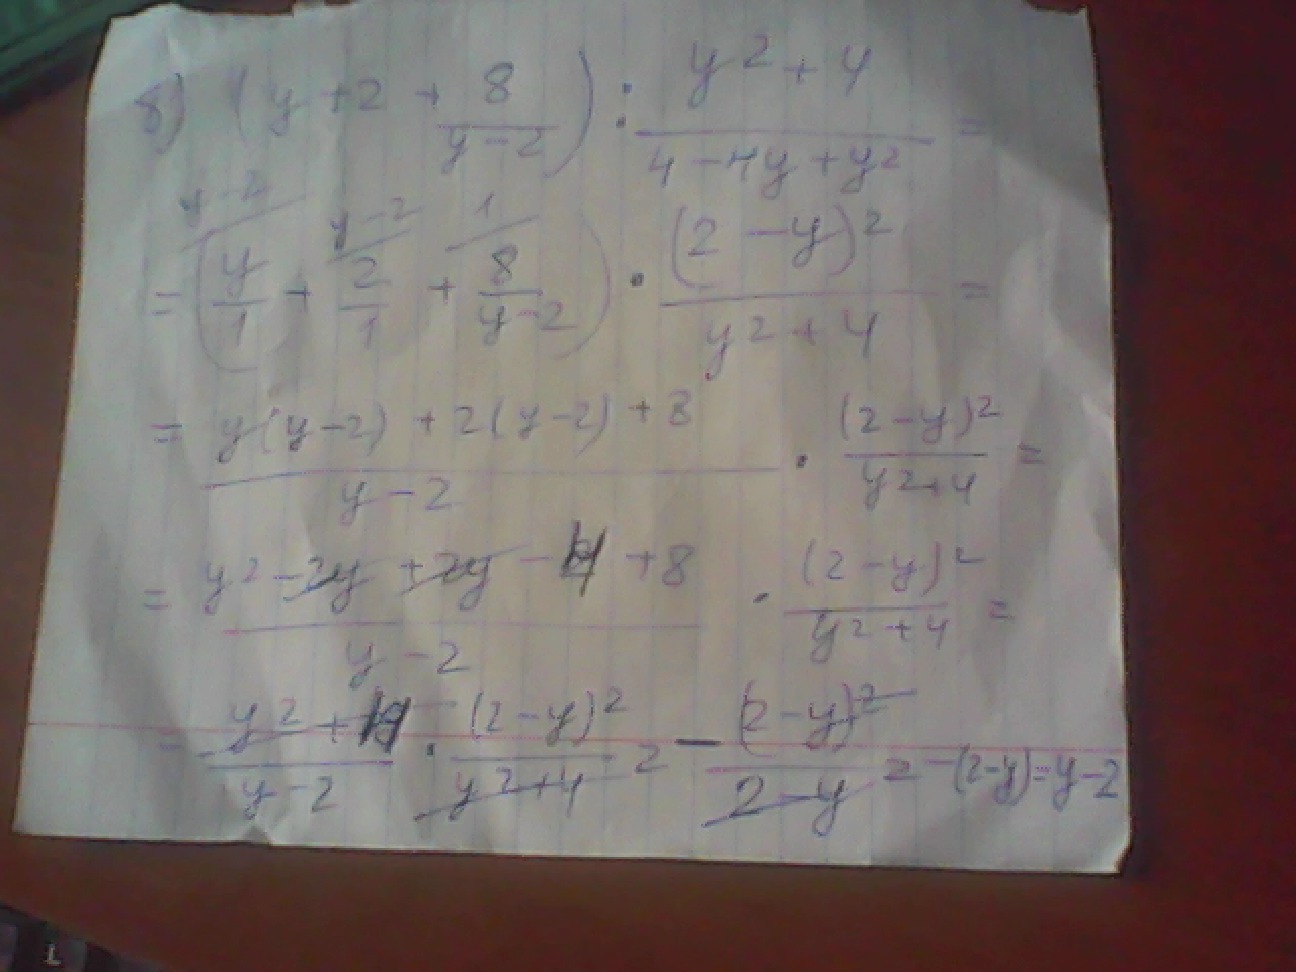 б) (y + 2 + 8/(y - 2)) : (y² + 4)/(4 - 4y + y²) =
y - 2 y - 2 1
= (y/1 + 2/1 + 8/(y - 2)) · (2 - y)²/(y² + 4) =
= (y(y - 2) + 2(y - 2) + 8)/(y - 2) · (2 - y)²/(y² + 4) =
= (y² - 2y + 2y - 4 + 8)/(y - 2) · (2 - y)²/(y² + 4) =
= (y² + 4)/(y - 2) · (2 - y)²/(y² + 4) = - (2 - y)²/(2 - y) = -(2 - y) = y - 2